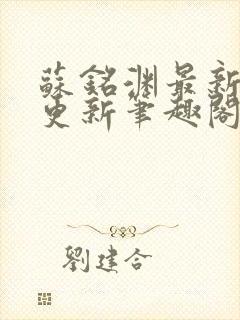 蘇銘淵最新
更新筆趣閣
劉建合